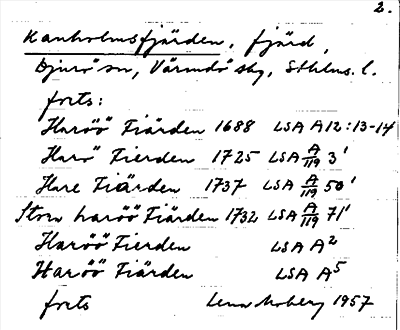 2.
Kanholmsfjärden, fjärd,
Djurö sn, Värmdö skg, Sthlms. l.
forts:
Haröö Fiärden 1688 LSA A12:13-14
Harö Fierden 1725 LSA A/119 3'
Hare Fiärden 1737 LSA A/119 50'
Stora haröö Fiärden 1732 LSA A/119 71'
Haröö Fierden LSA A2
Haröö Fiärden LSA A5
forts Lena Moberg 1957